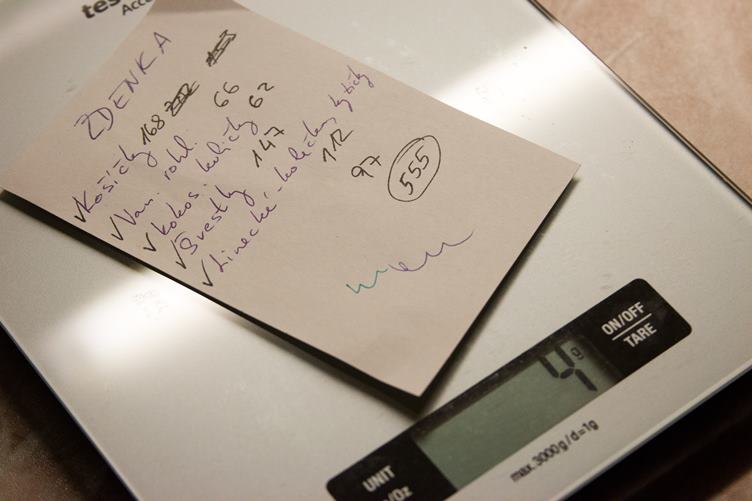 tes
Acce
ZDENKA
✓Košíčky 168
✓Van. rohl. 66
✓Kokos. kuličky 62
✓Švestky 147
✓Linecké - kolečka, rybičky 112
97
555
ON/OFF
TARE
4 g
max. 3000 g / d = 1 g
UNIT
/Oz